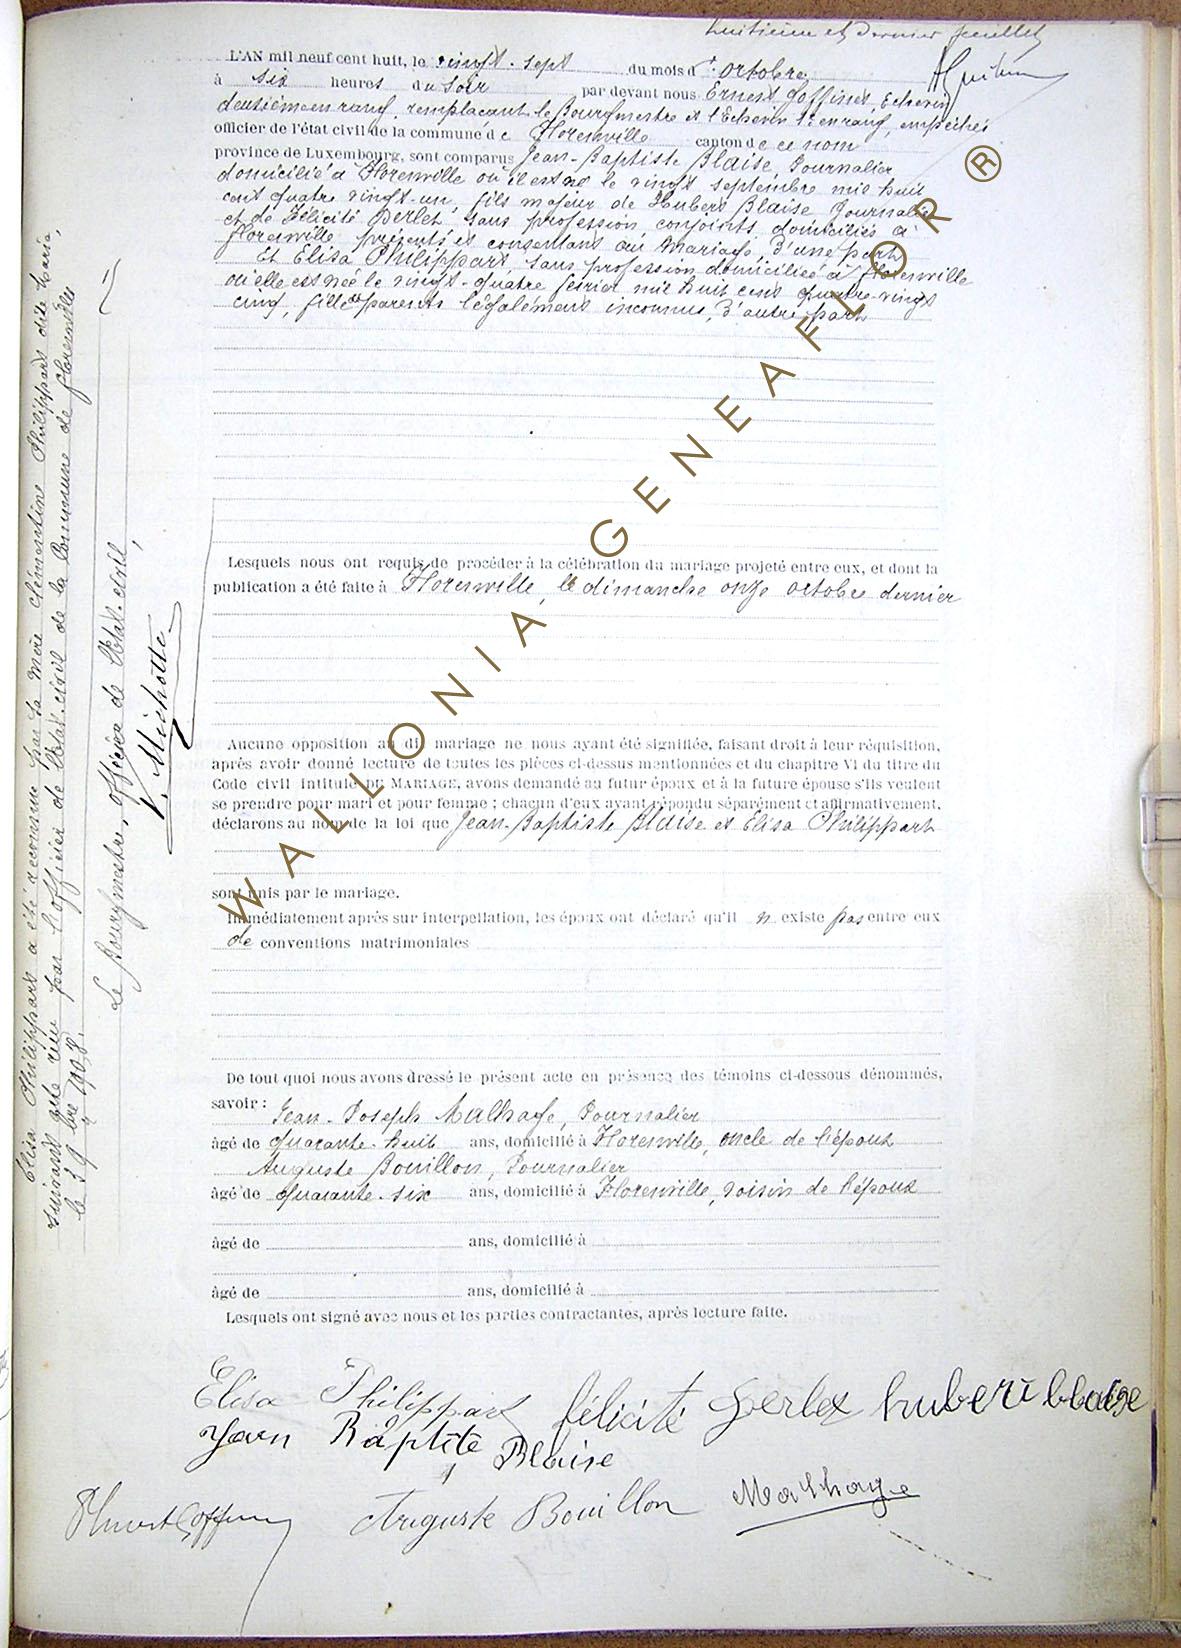 huitième et dernier feuillet
L'AN mil neuf cent huit, le vingt-sept du mois d'octobre
à six heures du soir par devant nous Ernest Goffinet, Echevin
deuxième en rang, remplaçant le Bourgmestre et l'Echevin 1er en rang, empêchés
officier de l'état civil de la commune de Florenville canton de ce nom
province de Luxembourg, sont comparus Jean-Baptiste Blaise, Journalier
domicilié à Florenville où il est né le vingt septembre mil huit
cent quatre vingt-un, fils majeur de Hubert Blaise Journalier
et de Félicité Perlet, sans profession, conjoints, domiciliés à
Florenville présents et consentans au mariage d'une part
Et Elisa Philippart, sans profession domiciliée à Florenville
où elle est née le vingt-quatre février mil huit cent quatre-vingt
cinq, fille de parents légalement inconnus, d'autre part
Lesquels nous ont requis de procéder à la célébration du mariage projeté entre eux, et dont la
publication a été faite à Florenville, le dimanche onze octobre dernier
Aucune opposition au dit mariage ne nous ayant été signifiée, faisant droit à leur réquisition,
après avoir donné lecture de toutes les pièces ci-dessus mentionnées et du chapitre VI du titre du
Code civil intitulé DU MARIAGE, avons demandé au futur époux et à la future épouse s'ils veulent
se prendre pour mari et pour femme ; chacun d'eux ayant répondu séparément et affirmativement,
déclarons au nom de la loi que Jean-Baptiste Blaise et Elisa Philippart
sont unis par le mariage.
Immédiatement après sur interpellation, les époux ont déclaré qu'il n existe pas entre eux
de conventions matrimoniales
De tout quoi nous avons dressé le présent acte en présence des témoins ci-dessous dénommés,
savoir : Jean-Joseph Malhage, Journalier
âgé de quarante-huit ans, domicilié à Florenville, oncle de l'époux
Auguste Bouillon, Journalier
âgé de quarante-six ans, domicilié à Florenville, voisin de l'époux
âgé de ans, domicilié à
âgé de ans, domicilié à
Lesquels ont signé avec nous et les parties contractantes, après lecture faite.
Elisa Philippart félicité Perlet hubert blaise
Jean Baptite Blaise
Auguste Bouillon Malhage
Elisa Philippart a été reconnue par sa mère Clémentine Philippart dite Maria,
suivant acte reçu par l'officier de l'état-civil de la Commune de Florenville
le 9bre 1908.
Le Bourgmestre, officier de l'état-civil,
V. Michotte
WALLONIA GENEAFLOR ®